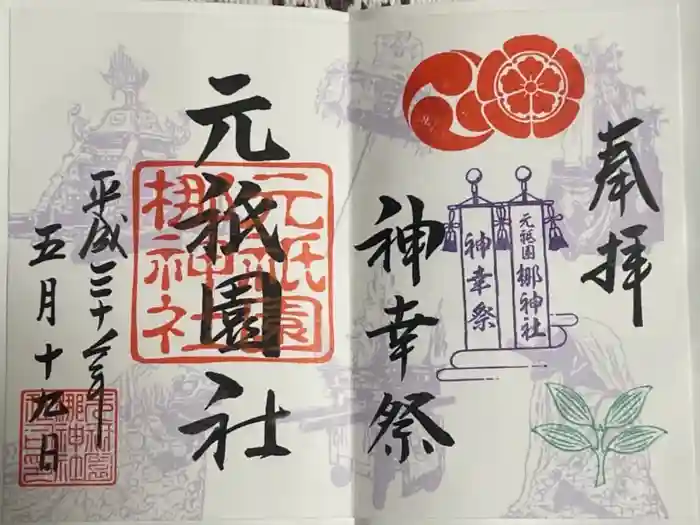 奉拝
元祇園梛神社
神幸祭
神幸祭
元祇園社
元祇園
梛神社
平成三十年
五月十九日